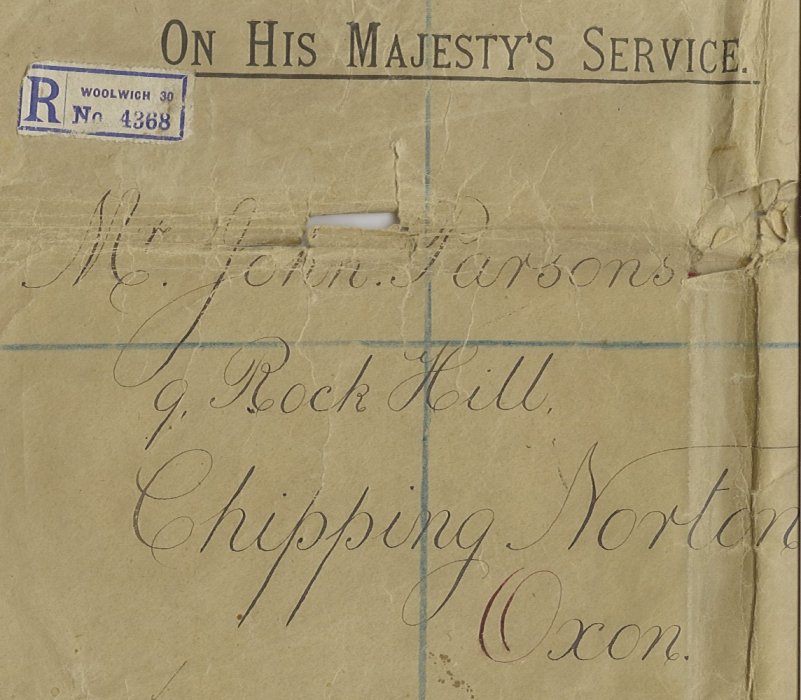 ON HIS MAJESTY'S SERVICE.
R WOOLWICH 30
No 4368
Mr. John. Parsons.
9, Rock Hill,
Chipping Norton
Oxon.